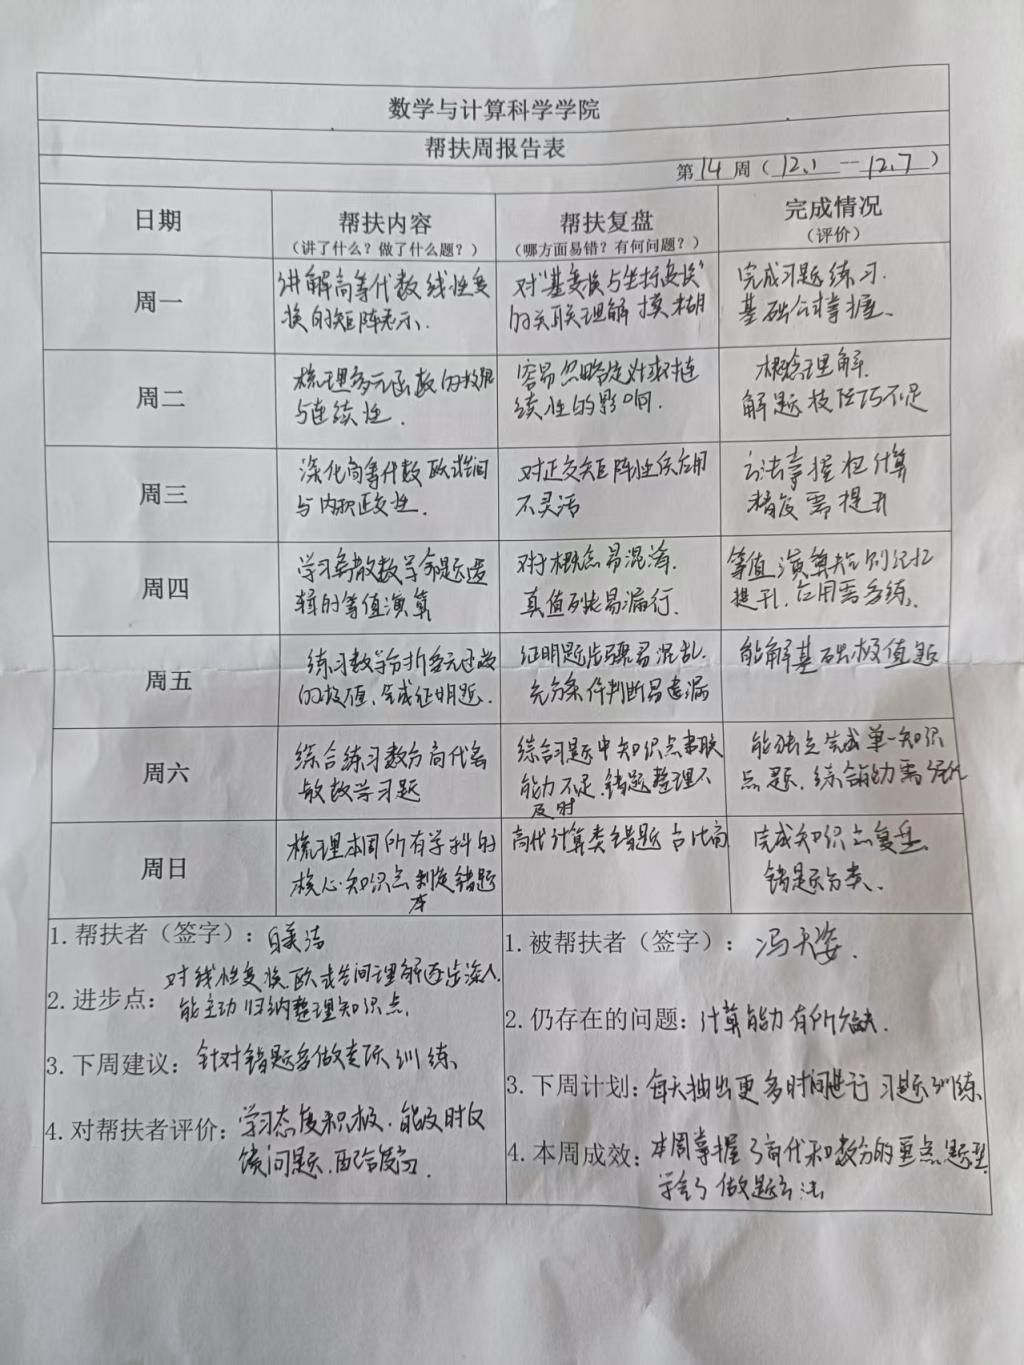 数学与计算科学学院
帮扶周报告表
第14周（12.1—12.7）
日期
帮扶内容
（讲了什么？做了什么题？）
帮扶复盘
（哪方面易错？有何问题？）
完成情况
（评价）
周一
讲解高等代数线性变
换的矩阵表示、
对“基变换与坐标变换”
的关联理解模糊
完成习题练习.
基础公式掌握、
周二
梳理多元函数的极限
与连续性.
容易忽略定对连
续性的影响.
概念理解.
解题技巧不足
周三
深化高等代数欧式空间
与内积正交性.
对正交矩阵性质应用
不灵活
方法掌握但计算
精度需提升
周四
学习离散数学命题逻
辑的等值演算
对于概念易混淆.
真值列表易漏行.
等值演算规则记忆
提升.应用需多练、
周五
练习数学分析多元函数
的极值、完成证明题.
证明题步骤易混乱.
充分条件判断易遗漏
能解基础极值题
周六
综合练习数分高代离
散数学习题
综合习题中知识点串联
能力不足.错题整理不
及时
能独立完成单一知识
点题.综合能力需强化
周日
梳理本周所有学科的
核心知识点制定错题
本
高代计算类错题占比高
完成知识点复盘、
错题分类、
1. 帮扶者（签字）：
2. 进步点：对线性变换.欧式空间理解逐步深入.
能主动归纳整理知识点.
3. 下周建议：针对错题多做专项训练、
4. 对帮扶者评价：学习态度积极.能及时反
馈问题.配合度高.
1. 被帮扶者（签字）：冯天姿.
2. 仍存在的问题：计算能力有所欠缺.
3. 下周计划：每天抽出更多时间进行习题训练、
4. 本周成效：本周掌握了高代和数分的重点题型
学会了做题方法